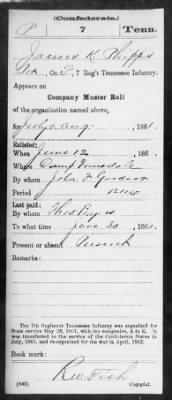 (Confederate.)
P 7 Tenn.
James K. Phipps
Pvt, Co. , 7 Reg't Tennessee Infantry.
Appears on
Company Muster Roll
of the organization named above,
for July & Aug 1861.
Enlisted:
When June 12 186 .
Where Camp
By whom John F. Goodner
Period 12 mo
Last paid:
By whom Thos
To what time June 30 1861.
Present or absent Present
Remarks:
The 7th Regiment Tennessee Infantry was organized for
State service May 28, 1861, with ten companies, A to K. It
was transferred to the service of the Confederate States in
July, 1861, and re-organized for the war in April, 1862.
Book mark:
(642)
Copyist.